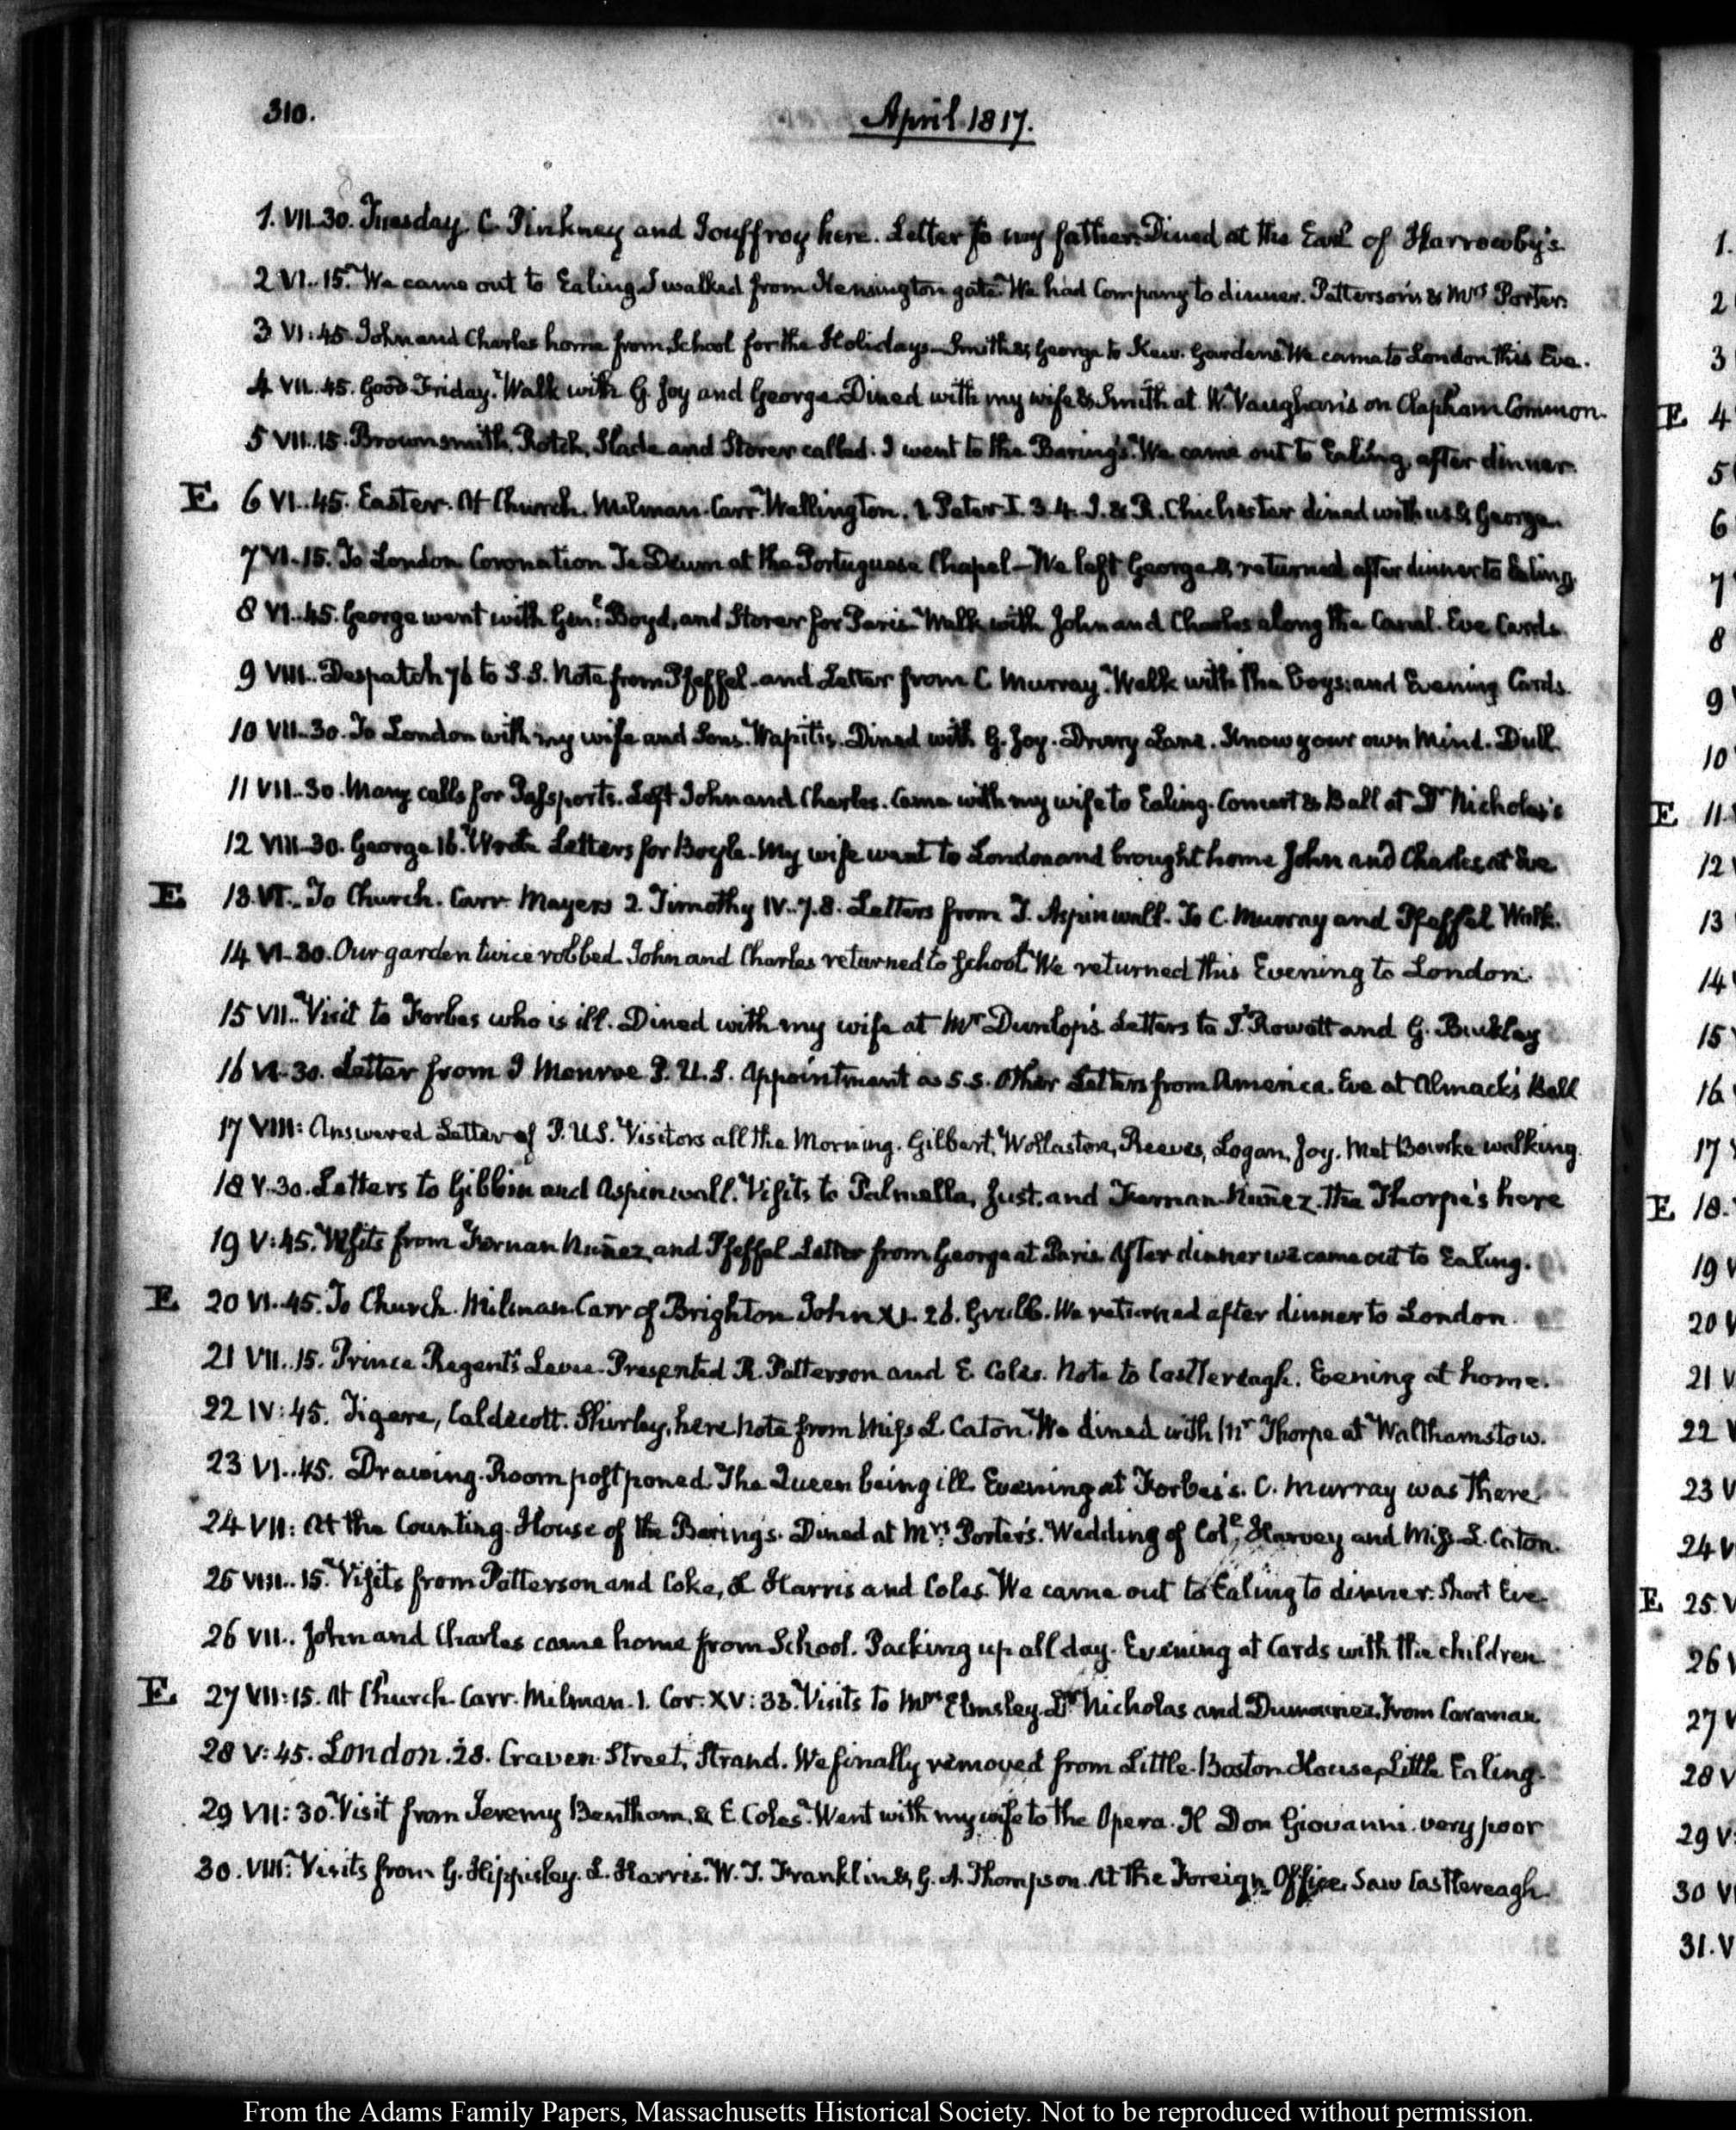 310.
April 1817.
1. VII.30. Tuesday. C. Pinkney and Jouffroy here. Letter to my father. Dined at the Earl of Harrowby's.
2 VI..15. We came out to Ealing. I walked from Kensington gate. We had Company to dinner. Patterson's & Mrs Porter.
3 VI:45. John and Charles home from School for the Holidays—Smith & George to Kew. Gardens. We came to London this Eve.
E 4
4 VII.45. Good Friday. Walk with G. Joy and George. Dined with my wife & Smith at W. Vaughan's on Clapham Common.
5 VII.15. Brownsmith, Rotch, Slade and Storer called. I went to the Baring's. We came out to Ealing, after dinner.
E 6 VI..45. Easter. At Church. Milman. Carr. Wallington. 1 Peter I. 3.4. J. & R. Chichester dined with us & George.
7 VI..15. To London Coronation Te Deum at the Portuguese Chapel—We left George & returned after dinner to Ealing.
8 VI..45. George went with Genl. Boyd, and Storer for Paris. Walk with John and Charles along the Canal. Eve Cards.
9 VIII.. Despatch 76 to S.S. Note from Pfeffel. and Letter from C. Murray. Walk with the Boys: and Evening Cards.
10 VII..30. To London with my wife and Sons. Wapitis. Dined with G. Joy. Drury Lane. Know your own Mind. Dull.
11 VII..30. Many calls for Passports. Left John and Charles. Came with my wife to Ealing. Concert & Ball at Dr Nicholas's
E 11
12 VIII..30. George 16. Wrote Letters for Boyle. My wife went to London and brought home John and Charles at Eve
E 13. VI.. To Church. Carr. Mayers 2. Timothy IV..7.8. Letters from T. Aspinwall. To C. Murray and Pfeffel Walk.
14 VI..30. Our garden twice robbed. John and Charles returned to School. We returned this Evening to London.
15 VII.. Visit to Forbes who is ill. Dined with my wife at Mr Dunlop's. Letters to J. Rowett and G. Buckley
16 VI..30. Letter from J Monroe P. U.S. Appointment as S.S. Other Letters from America. Eve at Almack's Ball
17 VIII: Answered Letter of P. U.S. Visitors all the Morning. Gilbert, Wollaston, Reeves, Logan, Joy. Met Bourke walking.
18 V.30. Letters to Gibbin and Aspinwall. Visits to Palmella, Just. and Fernan-Nuñez. The Thorpe's here
E 18.
19 V:45. Visits from Fernan Nuñez, and Pfeffel. Letter from George at Paris. After dinner we came out to Ealing.
E 20 VI..45. To Church. Milman. Carr of Brighton John XI. 26. Grubb. We returned after dinner to London.
21 VII..15. Prince Regent's Levee. Presented R. Patterson and E. Coles. Note to Castlereagh. Evening at home.
22 IV:45. Tigere, Caldecott. Shirley, here. Note from Miss L. Caton. We dined with Mr Thorpe at Walthamstow.
23 VI..45. Drawing-Room postponed. The Queen being ill. Evening at Forbes's. C. Murray was there
24 VII: At the Counting-House of the Baring's. Dined at Mrs: Porter's. Wedding of Coll. Harvey and Miss L. Caton.
25 VIII..15. Visits from Patterson and Coke, L Harris and Coles. We came out to Ealing to dinner. Short Eve
E 25
26 VII.. John and Charles came home from School. Packing up all day. Evening at Cards with the children
E 27 VII:15. At Church. Carr. Milman. 1. Cor: XV:33. Visits to Mrs Elmsley. Dr Nicholas and Dumouriez. From Caraman
28 V:45. London. 28. Craven Street, Strand. We finally removed from Little-Boston House, Little Ealing.
29 VII:30. Visit from Jeremy Bentham, & E. Coles. Went with my wife to the Opera. Il Don Giovanni. very poor
30. VIII: Visits from G. Hippisley. L. Harris. W. T. Franklin & G. A. Thompson. At the Foreign Office. Saw Castlereagh.
From the Adams Family Papers, Massachusetts Historical Society. Not to be reproduced without permission.